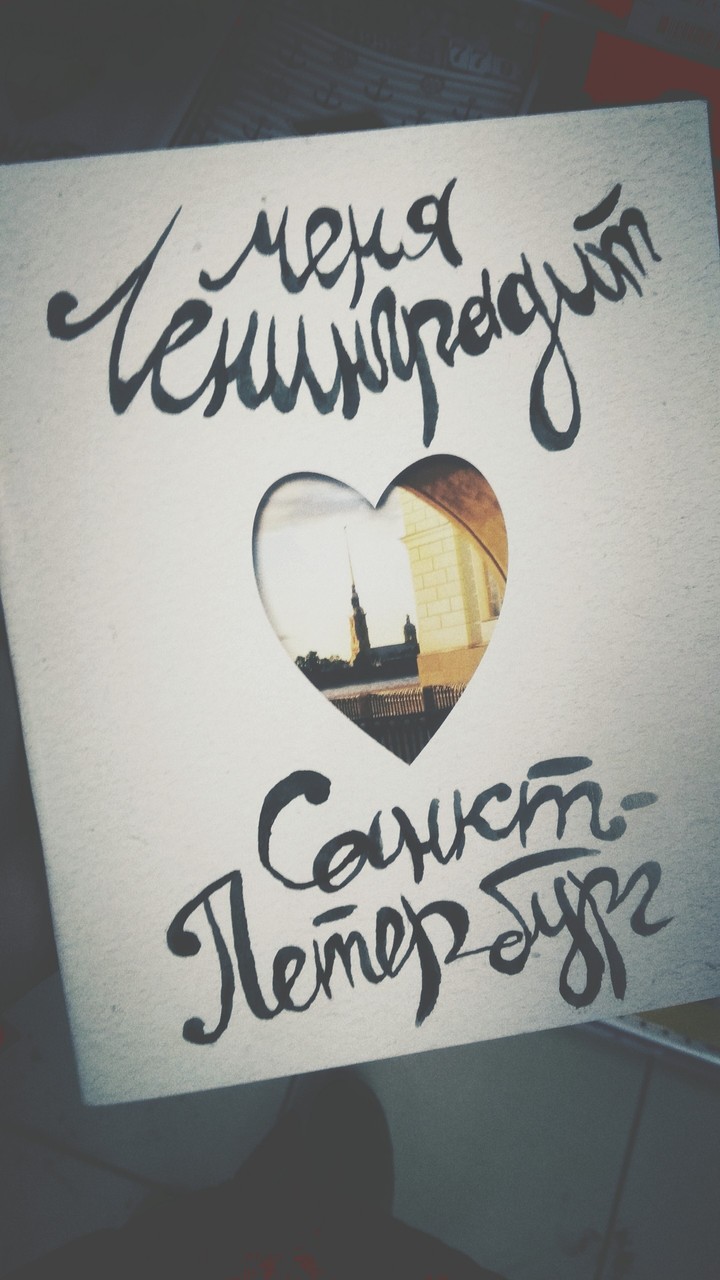 меня
Ленинградит
Санкт-
Петербург